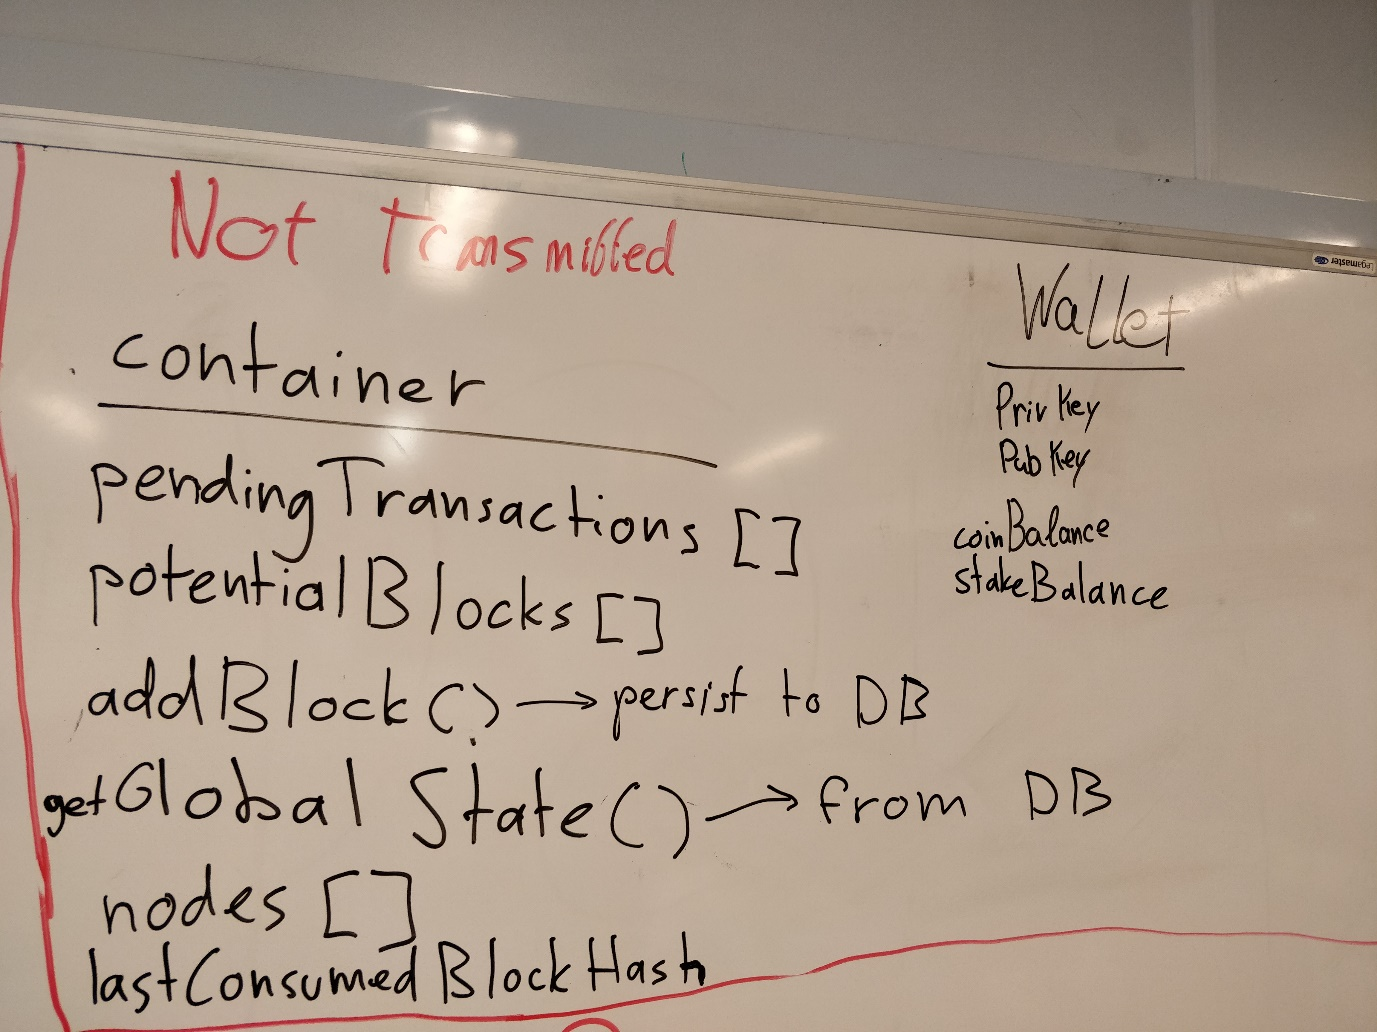 Not Transmitted
container
pendingTransactions []
potentialBlocks []
addBlock() → persist to DB
getGlobal State() → from DB
nodes []
lastConsumedBlockHash
Legamaster
Wallet
Priv Key
Pub Key
coinBalance
stakeBalance